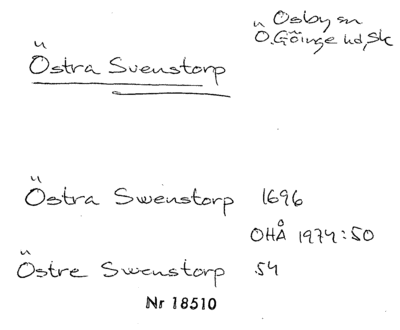 Osby sn
Ö. Göinge hd, Sk
Östra Svenstorp
Östra Swenstorp 1696
OHÅ 1974:50
Östre Swenstorp 54
Nr 18510